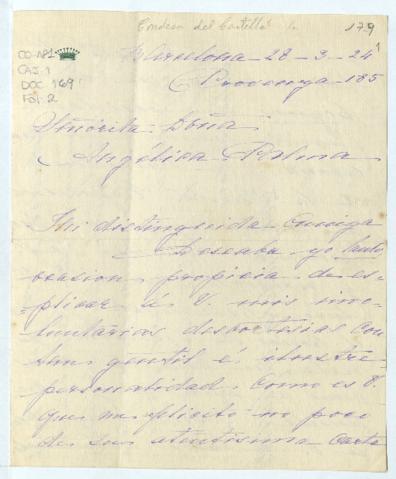 Condesa del Castellá
179
CO-AP1
CAJ. 1
DOC. 169
FOL. 2
Barcelona 28-3-24
Provenza 185
Señorita Doña
Angélica Palma
Mi distinguida amiga
Deseaba yo tanto
ocasion propicia de es-
=plicar á V. mis invo-
luntarias descortesias con
tan gentil é ilustre
personalidad, como es V.
que me felicito no poco
de su atentisima carta